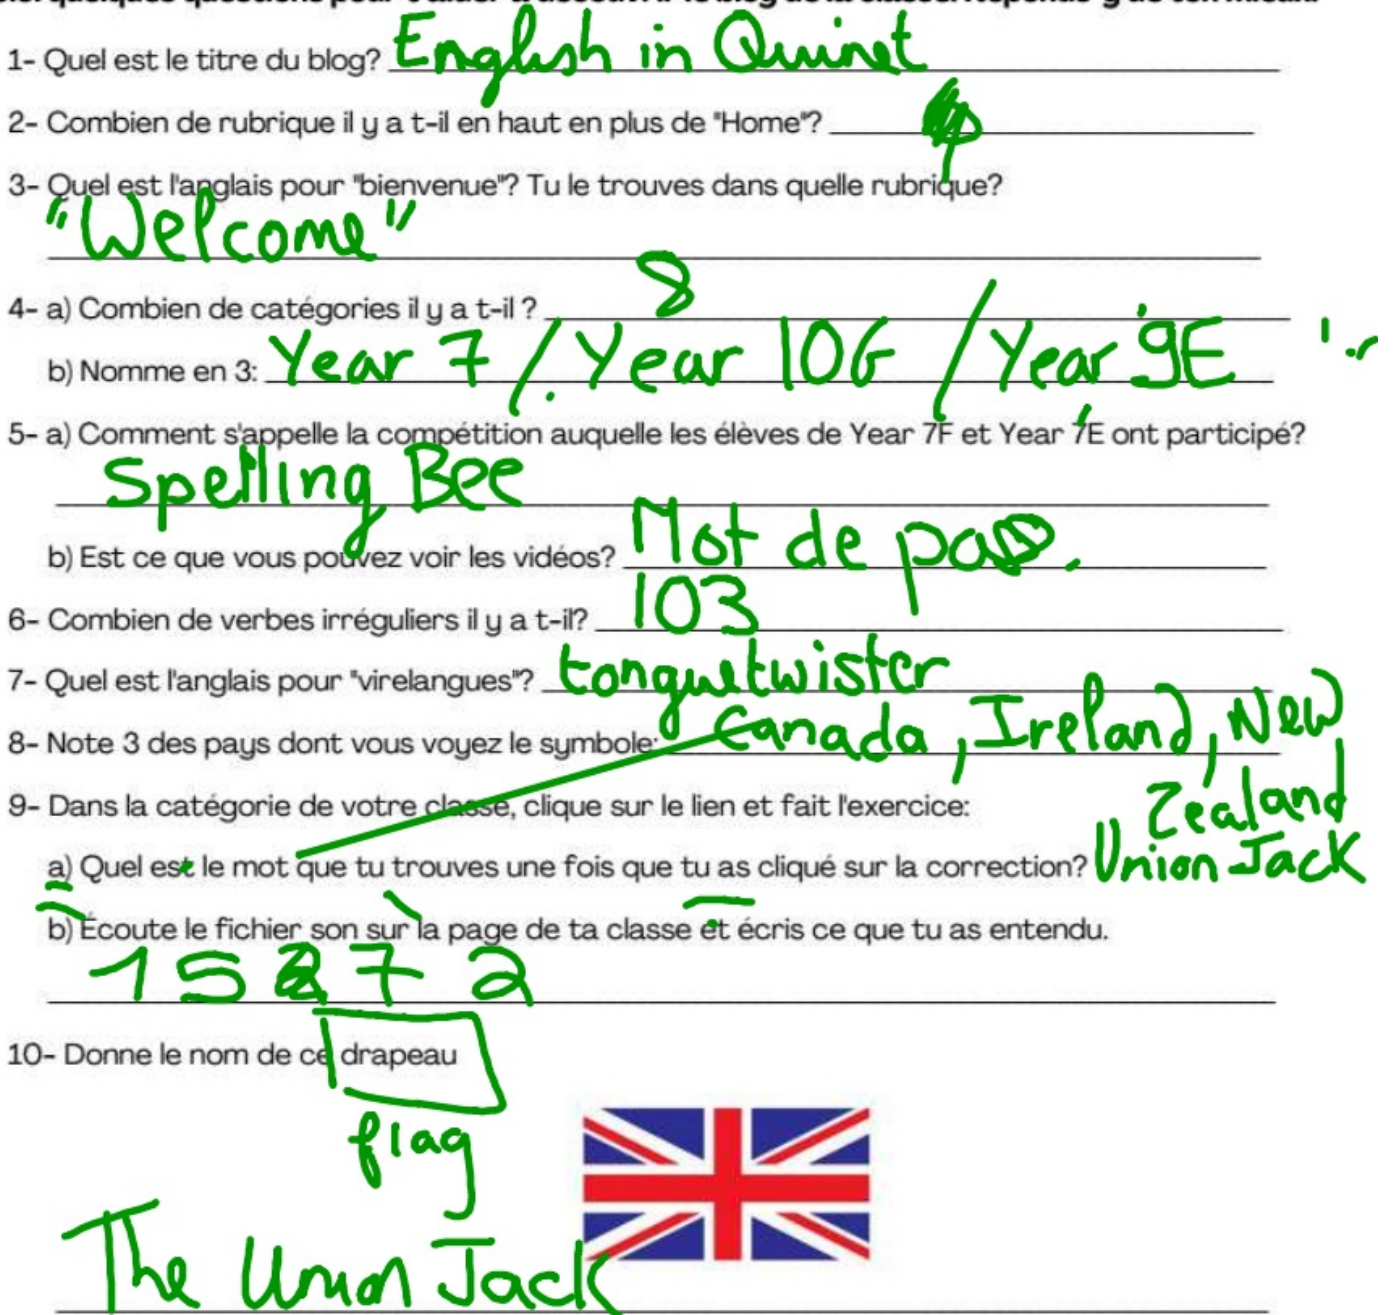 1- Quel est le titre du blog? English in Quinet
2- Combien de rubrique il y a t-il en haut en plus de "Home"?
3- Quel est l'anglais pour "bienvenue"? Tu le trouves dans quelle rubrique?
"Welcome"
4- a) Combien de catégories il y a t-il ? 8
b) Nomme en 3: Year 7 / Year 10G / Year 9E
5- a) Comment s'appelle la compétition auquelle les élèves de Year 7F et Year 7E ont participé?
Spelling Bee
b) Est ce que vous pouvez voir les vidéos? Mot de pass.
6- Combien de verbes irréguliers il y a t-il? 103
7- Quel est l'anglais pour "virelangues"? tonguetwister
8- Note 3 des pays dont vous voyez le symbole: Canada, Ireland, New
Zealand
9- Dans la catégorie de votre classe, clique sur le lien et fait l'exercice:
a) Quel est le mot que tu trouves une fois que tu as cliqué sur la correction? Union Jack
b) Écoute le fichier son sur la page de ta classe et écris ce que tu as entendu.
15272
10- Donne le nom de ce drapeau
flag
The Union Jack